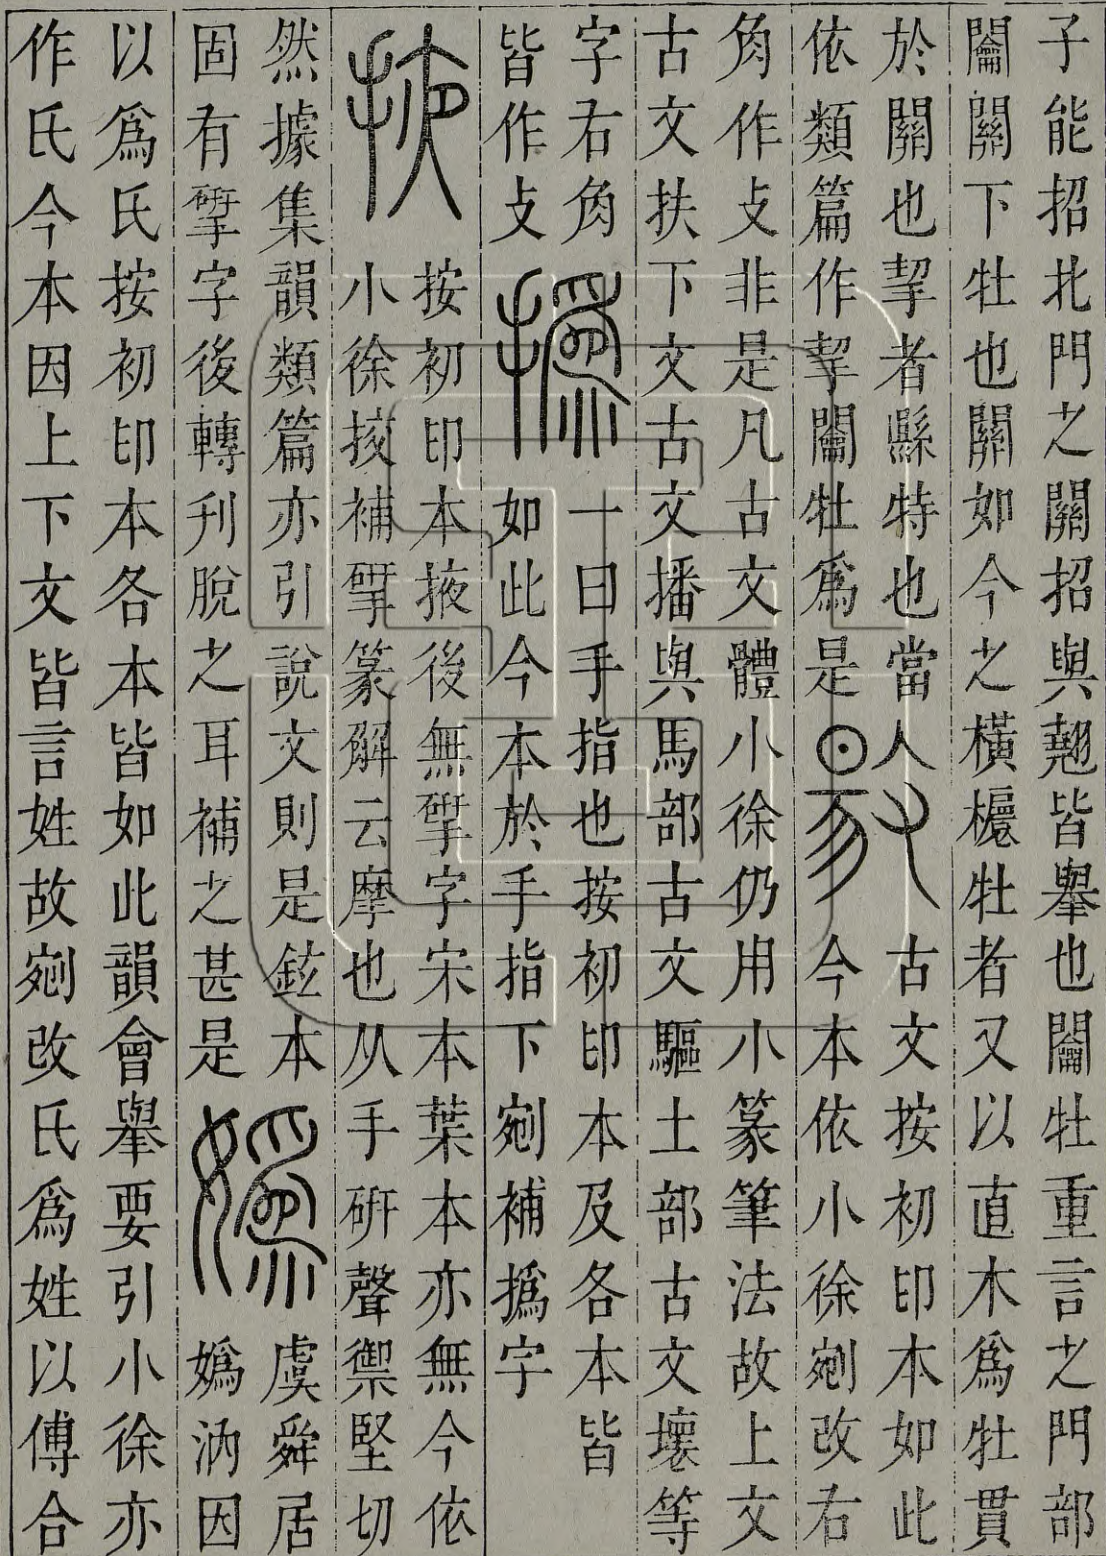 子能招北門之關招與翹皆舉也闔牡重言之門部
闔關下牡也關如今之橫櫎牡者又以直木爲牡貫
於關也挈者縣特也當人
古文按初印本如此
依類篇作挈闔牡爲是
今本依小徐剜改右
角作攴非是凡古文體小徐仍用小篆筆法故上文
古文扶下文古文播與馬部古文驅土部古文壞等
字右角
一曰手指也按初印本及各本皆
皆作攴
如此今本於手指下剜補撝字
按初印本掖後無揅字宋本葉本亦無今依
小徐掖補揅篆解云摩也从手硏聲禦堅切
然據集韻類篇亦引說文則是鉉本
虞舜居
固有揅字後轉刋脫之耳補之甚是
嬀汭因
以爲氏按初印本各本皆如此韻會舉要引小徐亦
作氏今本因上下文皆言姓故剜改氏爲姓以傅合